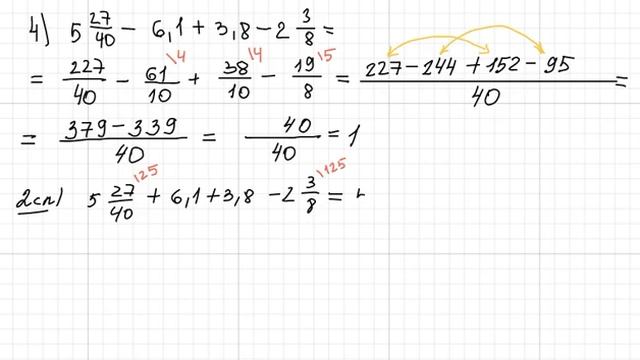 4) 5 27/40 − 6,1 + 3,8 − 2 3/8 =
= 227/40 − 61/10 \4 + 38/10 \4 − 19/8 \5 = (227 − 244 + 152 − 95)/40 =
= (379 − 339)/40 = 40/40 = 1
2сп) 5 27/40 \25 + 6,1 + 3,8 − 2 3/8 \125 =